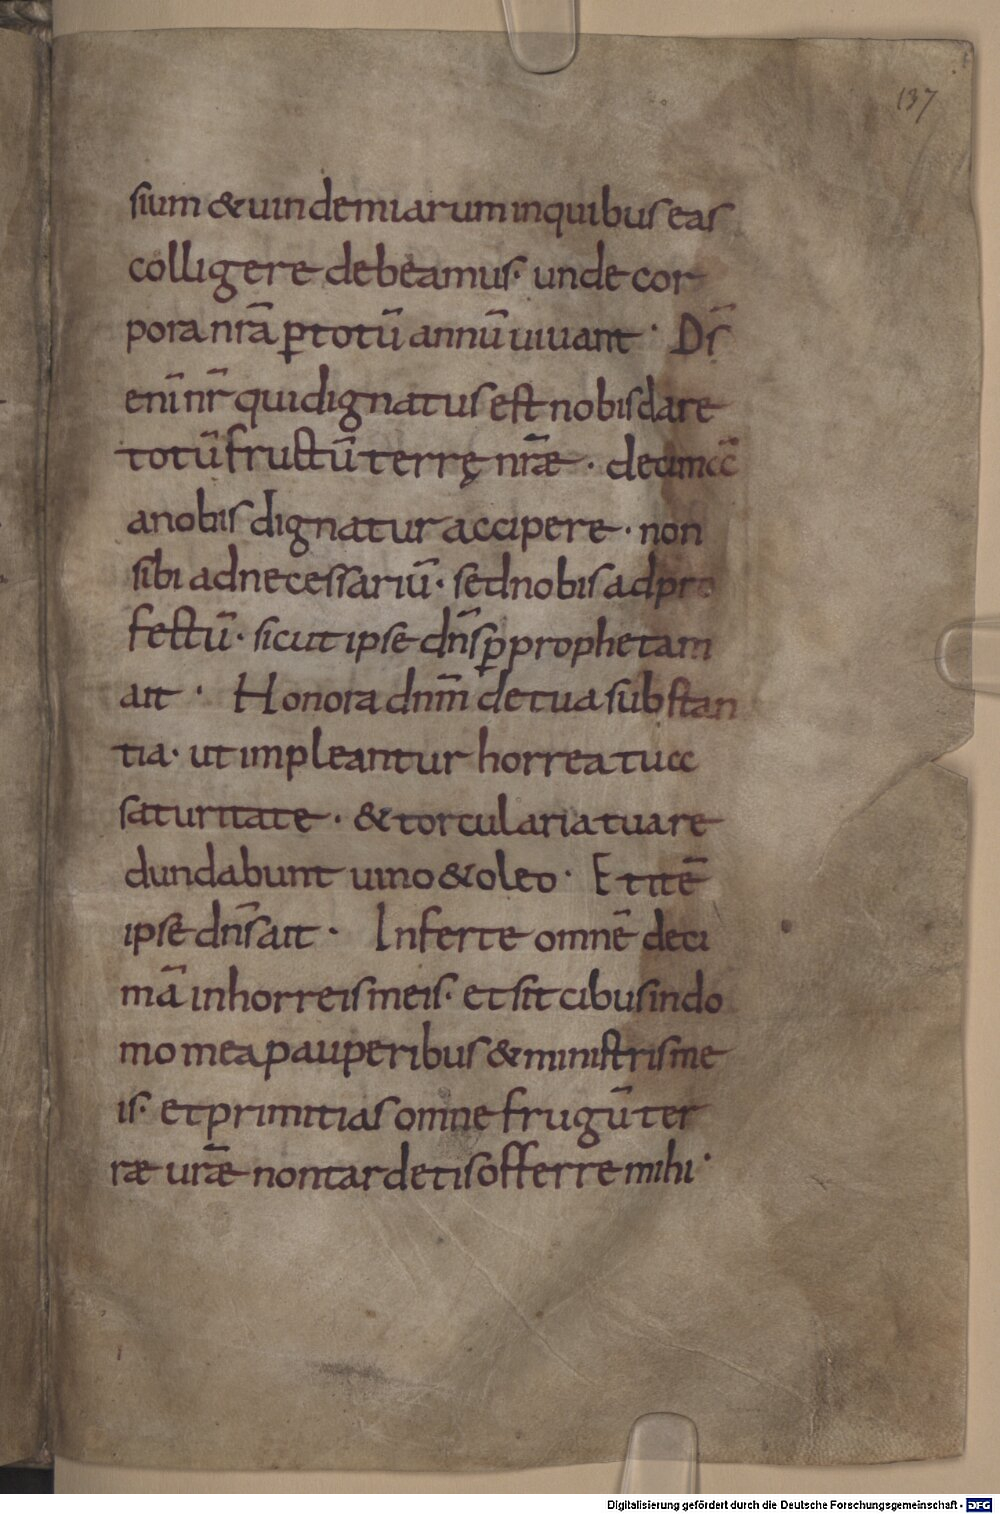 137
sium & uindemiarum in quibus eas
colligere debeamus· unde cor
pora nr̄a p̱ totū annū uiuant· Dr̄
enī nr̄ qui dignatus est nobis dare
totū fructū terrę nr̄æ· decimā
a nobis dignatur accipere· non
sibi ad necessariū· sed nobis ad pro
fectū· sicut ipse dn̄s p̱ prophetam
ait· Honora dnm̄ de tua substan
tia· ut impleantur horrea tua
saturitate· & torcularia tua re
dundabunt uino & oleo· Et itē
ipse dn̄s ait· Inferte omnē deci
mā in horreis meis· et sit cibus in do
mo mea pauperibus & ministris me
is· et primitias omne frugū ter
ræ ur̄æ non tardetis offerre mihi·
Digitalisierung gefördert durch die Deutsche Forschungsgemeinschaft - DFG